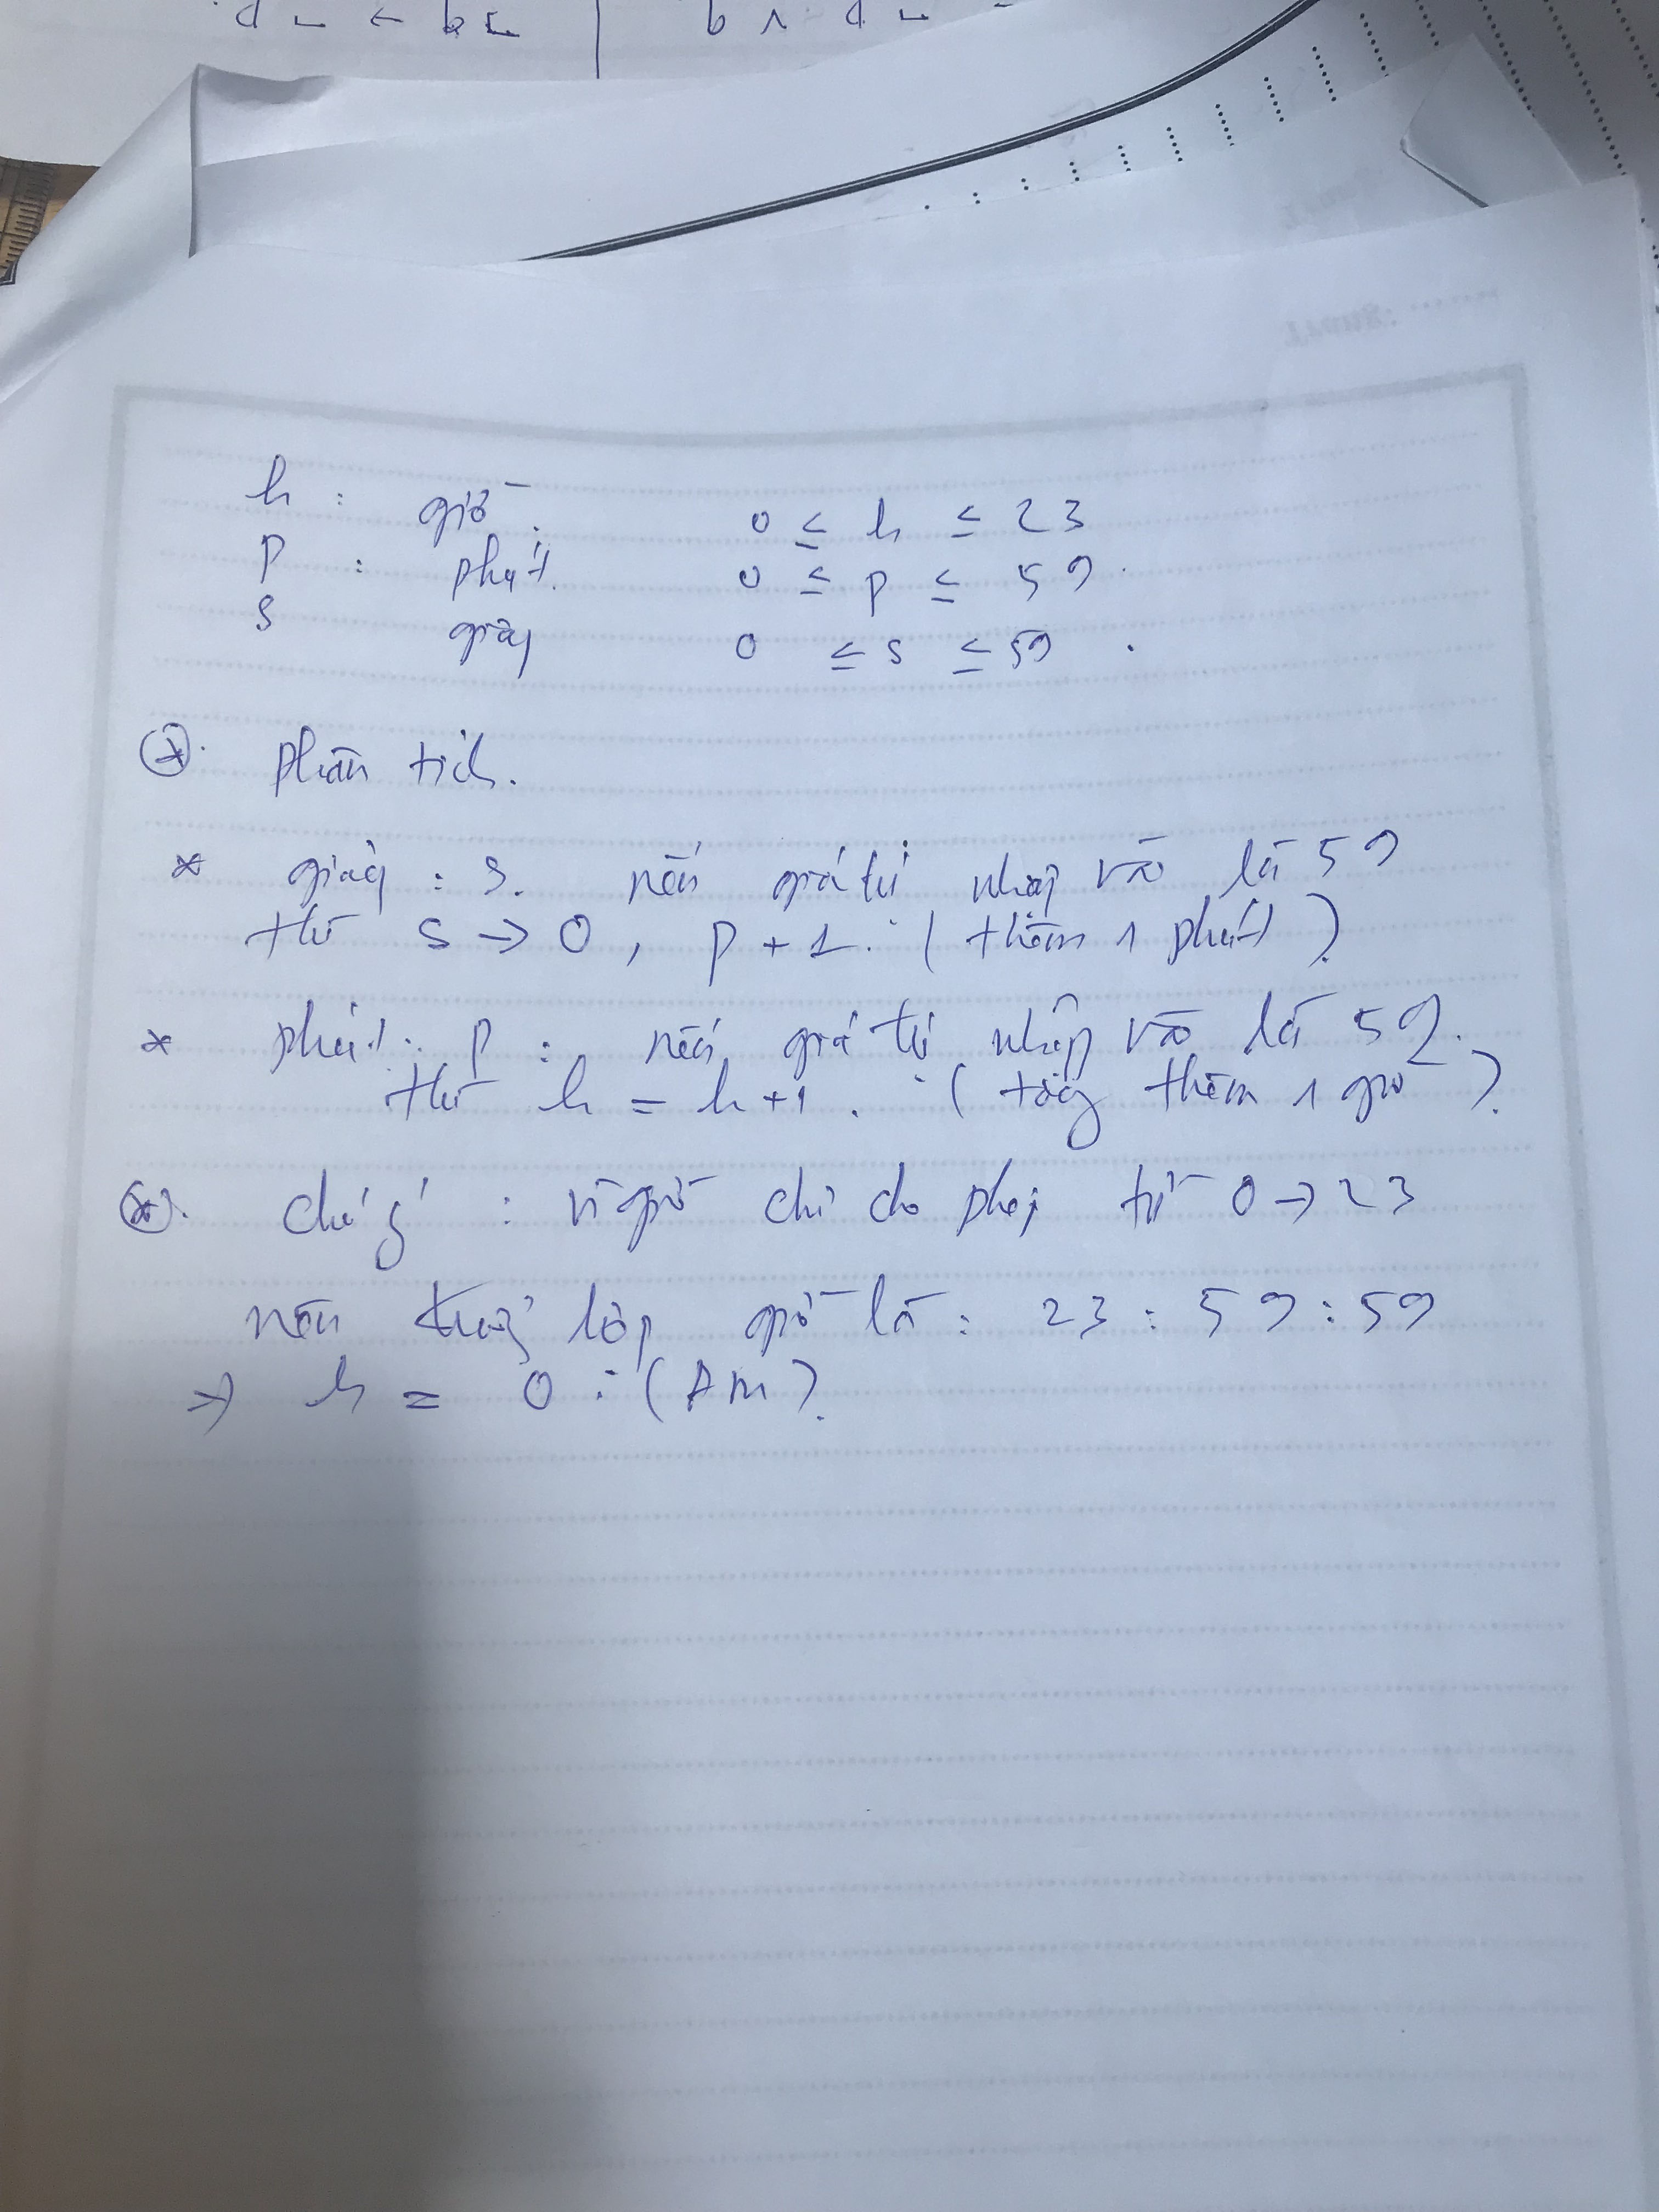 h : giờ. 0 ≤ h ≤ 23
p : phút. 0 ≤ p ≤ 59.
s giây 0 ≤ s ≤ 59.
⊛. phân tích.
* giây : s. nếu giá trị nhập vào là 59
thì s → 0, p + 1. (thêm 1 phút).
* phút. p : nếu giá trị nhập vào là 59.
thì h = h + 1. (tăng thêm 1 giờ).
⊛. chú ý : vì giờ chỉ cho phép từ 0 → 23
nên trường hợp giờ là : 23 : 59 : 59
⇒ h = 0 : (AM).